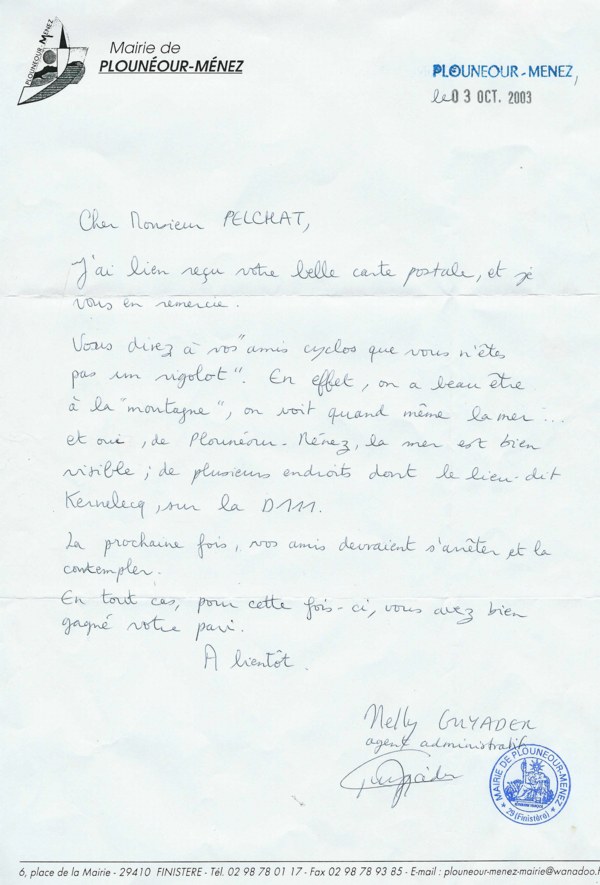 PLOUNEOUR MENEZ
Mairie de
PLOUNÉOUR-MÉNEZ
PLOUNEOUR-MENEZ,
le 0 3 OCT. 2003
Cher Monsieur PELCHAT,
J'ai bien reçu votre belle carte postale, et je
vous en remercie.
Vous direz à vos "amis cyclos que vous n'êtes
pas un rigolot". En effet, on a beau être
à la "montagne", on voit quand même la mer...
et oui, de Plounéour-Ménez, la mer est bien
visible ; de plusieurs endroits dont le lieu-dit
Kernelecq, sur la D111.
La prochaine fois, vos amis devraient s'arrêter et la
contempler.
En tout cas, pour cette fois-ci, vous avez bien
gagné votre pari.
A bientôt.
Nelly GUYADER
agent administratif
MAIRIE DE PLOUNEOUR-MENEZ
29 (Finistère)
6, place de la Mairie - 29410 FINISTERE - Tél. 02 98 78 01 17 - Fax 02 98 78 93 85 - E-mail : plouneour-menez-mairie@wanadoo.f